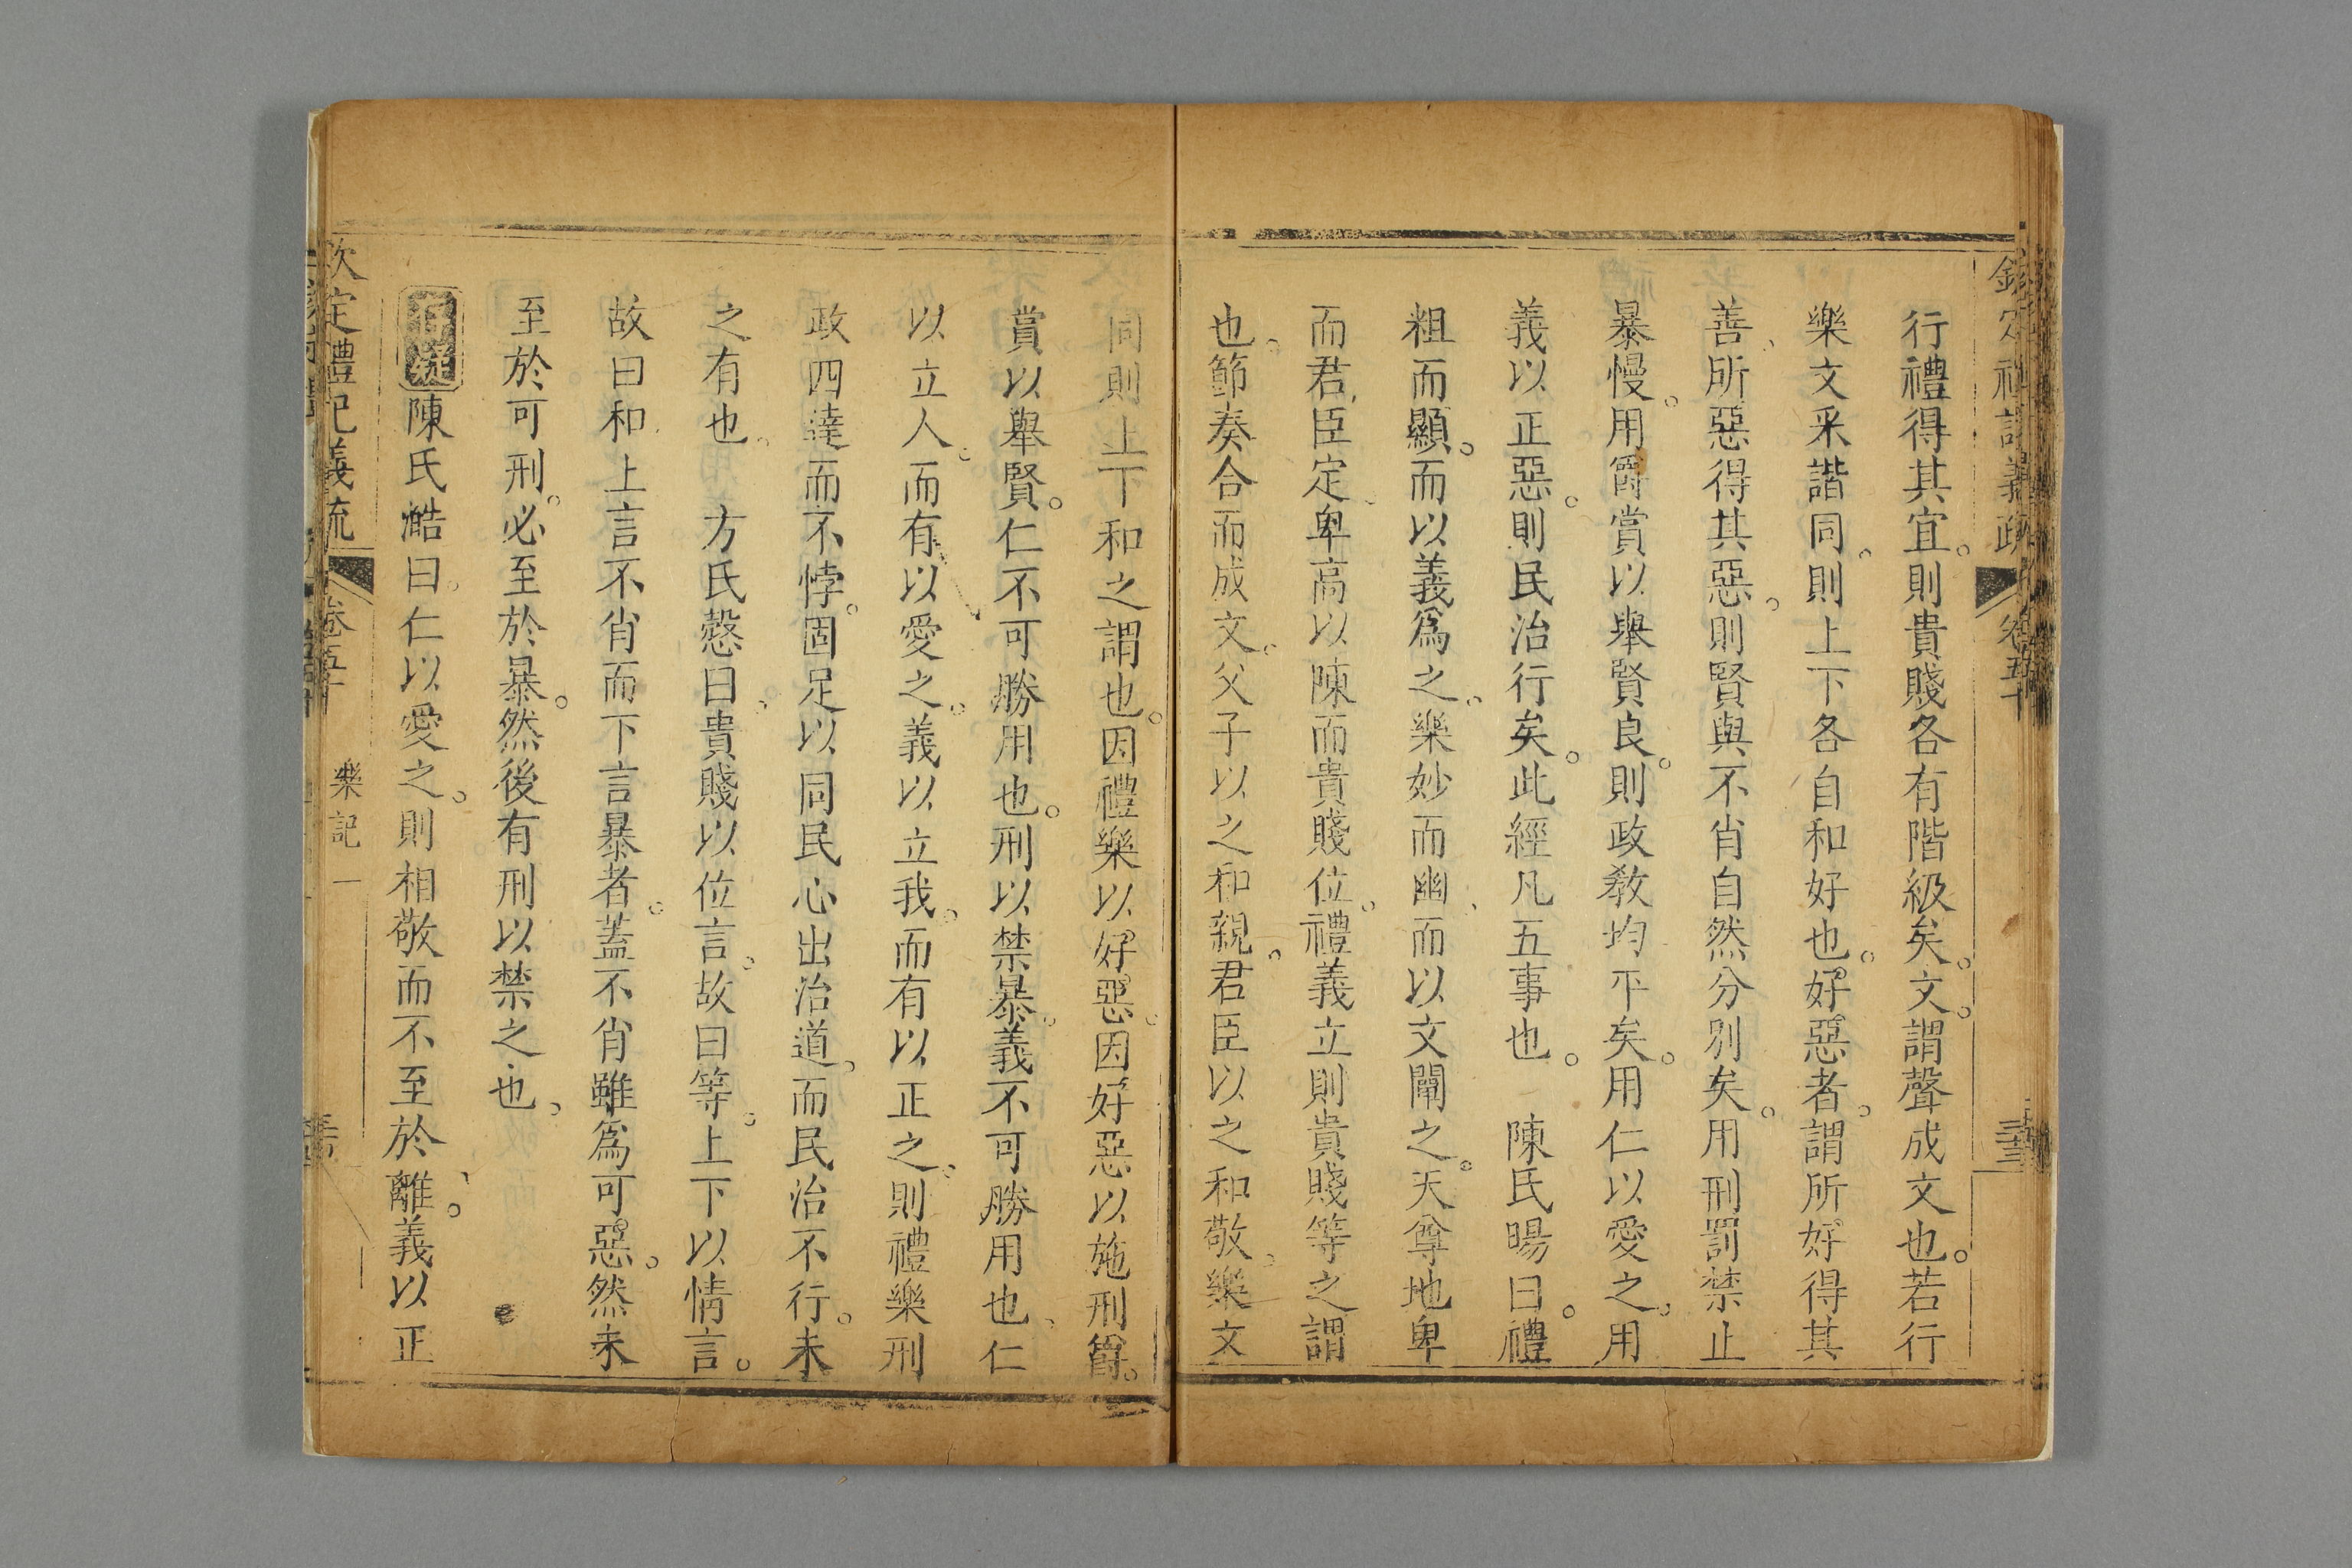 行禮得其宜。則貴賤各有階級矣。文。謂聲成文也。若行
樂文采諧同。則上下各自和好也。好惡者。謂所好得其
善、所惡得其惡。則賢與不肖自然分別矣。用刑罰禁止
暴慢。用爵賞以舉賢良。則政敎均平矣。用仁以愛之。用
義以正惡。則民治行矣。此經凡五事也。 陳氏暘曰。禮
粗而顯。而以義爲之。樂妙而幽、而以文闡之。天尊地卑
而君臣定、卑高以陳而貴賤位。禮義立則貴賤等之謂
也。節奏合而成文。父子以之和親。君臣以之和敬。樂文
同則上下和之謂也。因禮樂以好惡。因好惡以施刑爵。
賞以舉賢。仁不可勝用也。刑以禁暴。義不可勝用也、仁
以立人。而有以愛之。義以立我。而有以正之。則禮樂刑
政四達而不悖。固足以同民心出治道。而民治不行。未
之有也。 方氏慤曰。貴賤以位言。故曰等。上下以情言。
故曰和、上言不肖而下言暴者。蓋不肖雖爲可惡。然未
至於可刑。必至於暴。然後有刑以禁之也。
存疑陳氏澔曰。仁以愛之。則相敬而不至於離。義以正
欽定禮記義疏 卷五十 樂記一